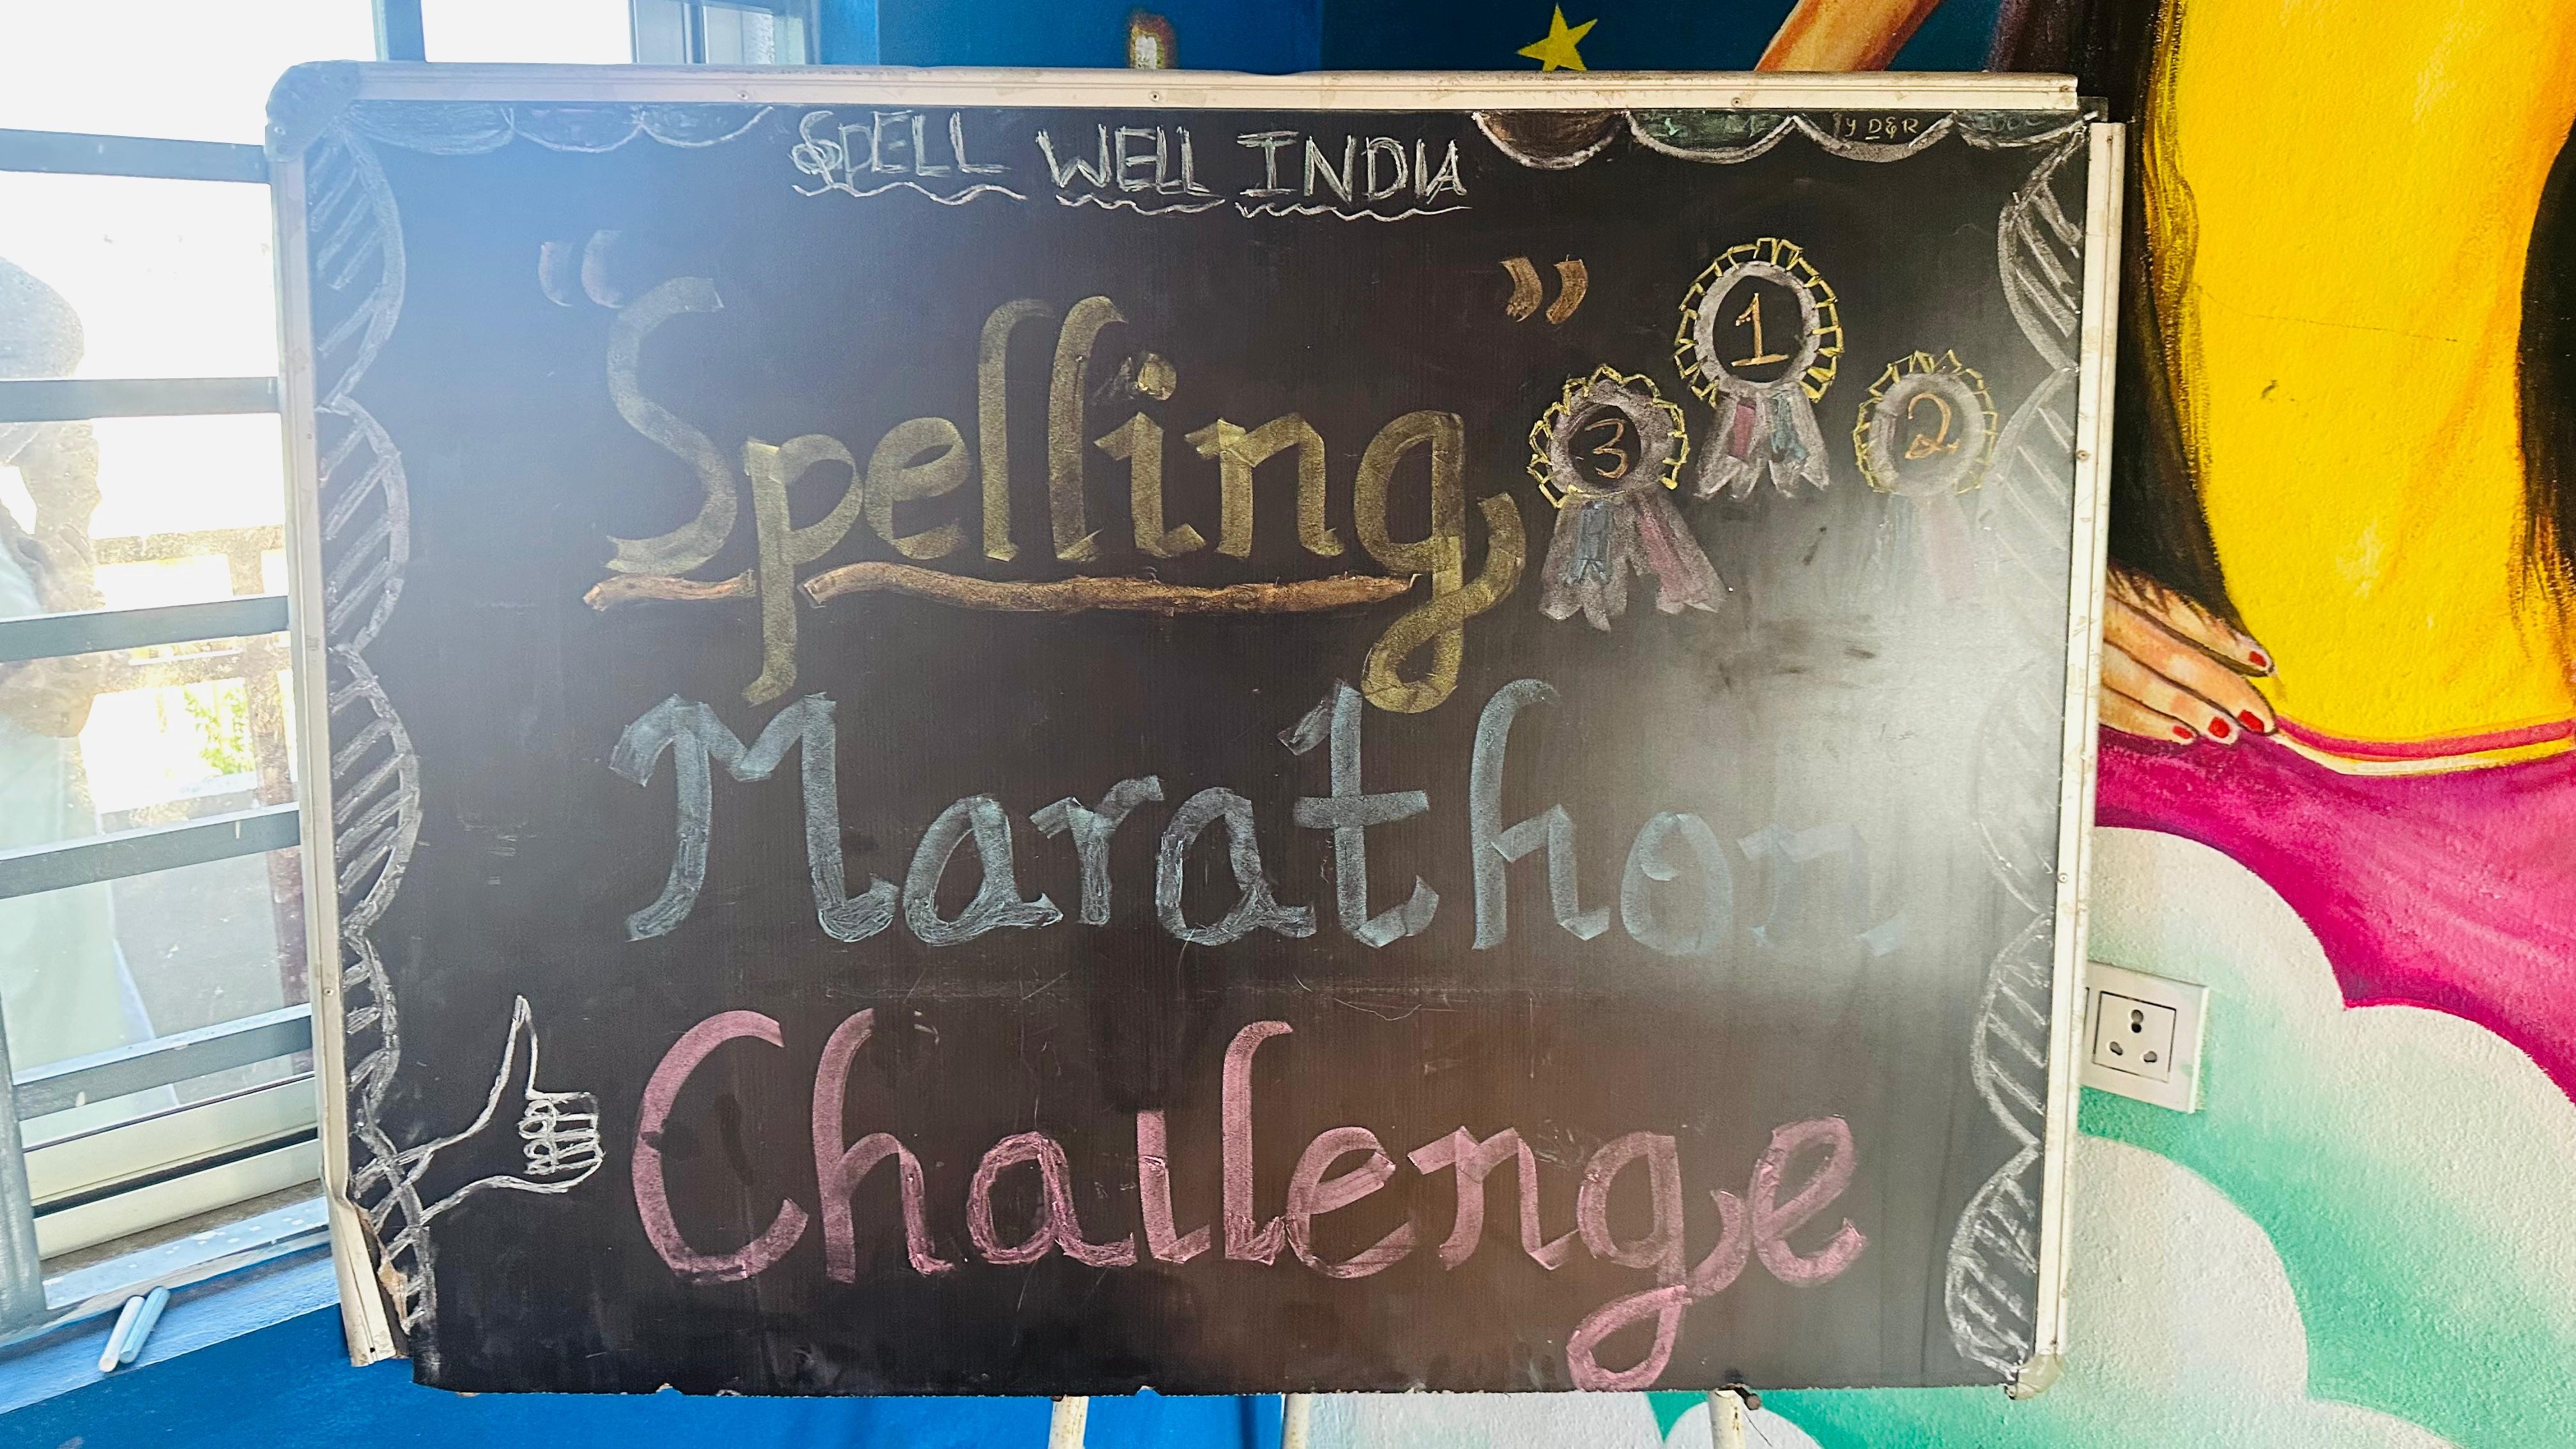 SPELL WELL INDIA
"Spelling"
Marathon
Challenge
1
3
2